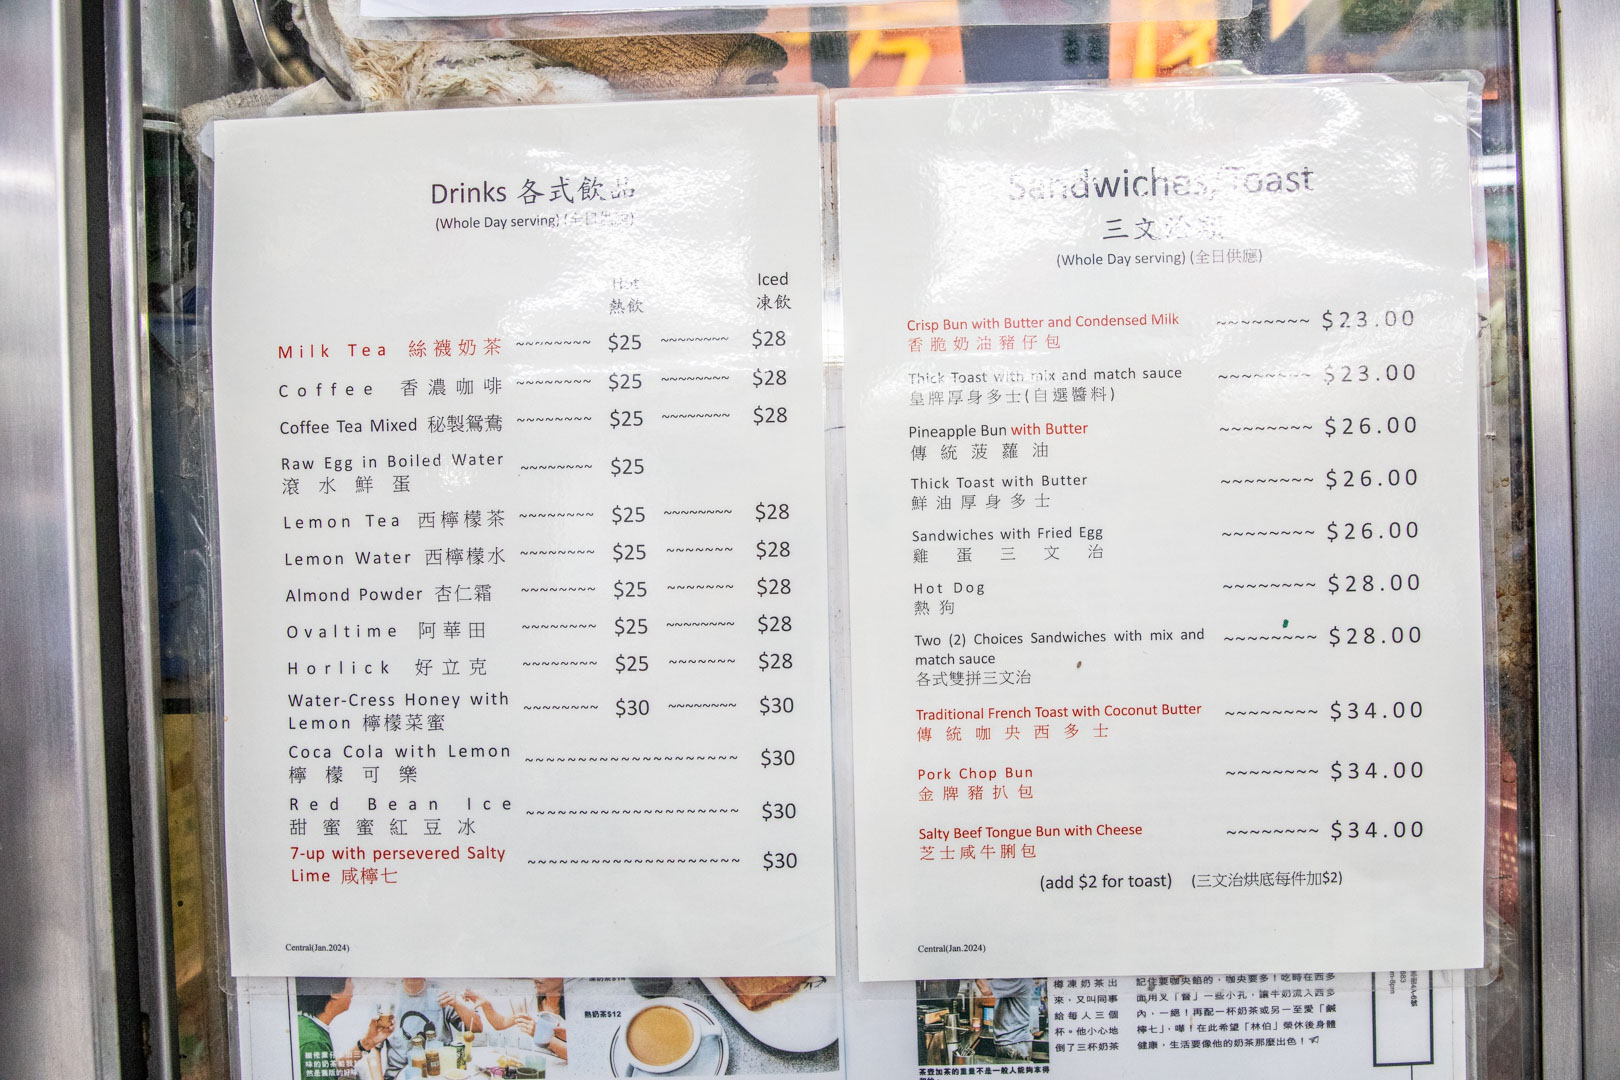 Drinks 各式飲品
(Whole Day serving) (全日供應)
Hot Iced
熱飲 凍飲
Milk Tea 絲襪奶茶 ~~~~~~~~ $25 ~~~~~~~~ $28
Coffee 香濃咖啡 ~~~~~~~~ $25 ~~~~~~~~ $28
Coffee Tea Mixed 秘製鴛鴦 ~~~~~~~~ $25 ~~~~~~~~ $28
Raw Egg in Boiled Water ~~~~~~~~ $25
滾水鮮蛋
Lemon Tea 西檸檬茶 ~~~~~~~~ $25 ~~~~~~~~ $28
Lemon Water 西檸檬水 ~~~~~~~~ $25 ~~~~~~~~ $28
Almond Powder 杏仁霜 ~~~~~~~~ $25 ~~~~~~~~ $28
Ovaltime 阿華田 ~~~~~~~~ $25 ~~~~~~~~ $28
Horlick 好立克 ~~~~~~~~ $25 ~~~~~~~~ $28
Water-Cress Honey with ~~~~~~~~ $30 ~~~~~~~~ $30
Lemon 檸檬菜蜜
Coca Cola with Lemon ~~~~~~~~~~~~~~~~~~~~ $30
檸檬可樂
Red Bean Ice ~~~~~~~~~~~~~~~~~~~~ $30
甜蜜蜜紅豆冰
7-up with persevered Salty ~~~~~~~~~~~~~~~~~~~~ $30
Lime 咸檸七
Central(Jan.2024)
Sandwiches/Toast
三文治類
(Whole Day serving) (全日供應)
Crisp Bun with Butter and Condensed Milk ~~~~~~~~ $23.00
香脆奶油豬仔包
Thick Toast with mix and match sauce ~~~~~~~~ $23.00
皇牌厚身多士(自選醬料)
Pineapple Bun with Butter ~~~~~~~~ $26.00
傳統菠蘿油
Thick Toast with Butter ~~~~~~~~ $26.00
鮮油厚身多士
Sandwiches with Fried Egg ~~~~~~~~ $26.00
雞蛋三文治
Hot Dog ~~~~~~~~ $28.00
熱狗
Two (2) Choices Sandwiches with mix and ~~~~~~~~ $28.00
match sauce
各式雙拼三文治
Traditional French Toast with Coconut Butter ~~~~~~~~ $34.00
傳統咖央西多士
Pork Chop Bun ~~~~~~~~ $34.00
金牌豬扒包
Salty Beef Tongue Bun with Cheese ~~~~~~~~ $34.00
芝士咸牛脷包
(add $2 for toast) (三文治烘底每件加$2)
Central(Jan.2024)
熱奶茶$12
樽凍奶茶出
來，又叫同事
給每人三個
杯。他小心地
倒了三杯奶茶
茶壺加茶的重量不是一般人能夠拿得
記住要咖央餡的，咖央要多！吃時在西多
面用叉「督」一些小孔，讓牛奶流入西多
內，一絕！再配一杯奶茶或另一至愛「鹹
檸七」，嘩！在此希望「林伯」榮休後身體
健康，生活要像他的奶茶那麼出色！